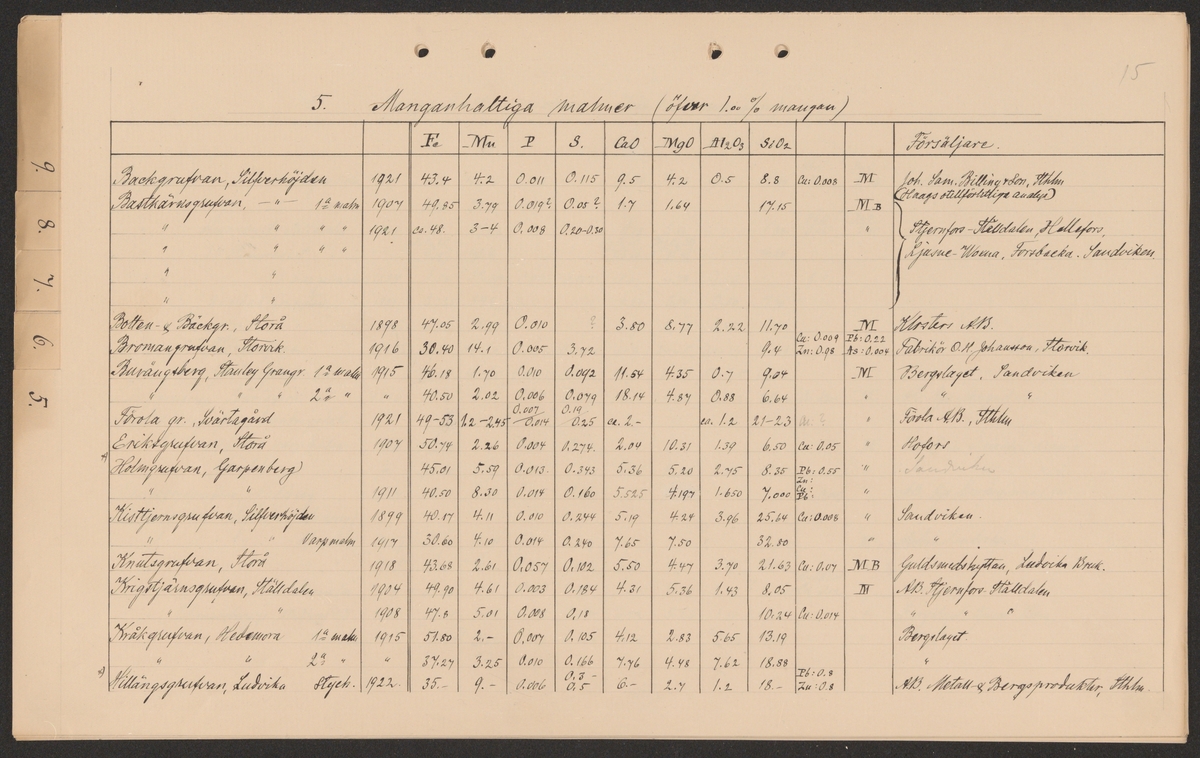 15
5. Manganhaltiga malmer (öfver 1.00 % mangan)
Fe Mn P S. CaO MgO Al2O3 SiO2 Försäljare.
Backgrufvan, Silfverhöjden 1921 43.4 4.2 0.011 0.115 9.5 4.2 0.5 8.8 Cu: 0.008 M Joh. Sam. Billingsson, Sthlm
Basthärnsgrufvan, —"— 1a malm 1907 49.85 3.79 0.019? 0.05? 1.7 1.64 17.15 M.B (Haags otillförlitliga analys)
" " " " 1921 ca. 48. 3-4 0.008 0.20-0.30 " Stjernfors-Ställdalen, Hellefors,
" " " " Ljusne-Woxna, Forsbacka. Sandviken
" "
" "
Botten- & Bäckgr., Storå 1898 47.05 2.99 0.010 ? 3.80 8.77 2.22 11.70 M Klosters A.B.
Bromangrufvan, Storvik. 1916 30.40 14.1 0.005 3.72 9.4 Cu: 0.009 Zn: 0.98 Pb: 0.22 As: 0.004 Fabrikör O.H. Johansson, Storvik.
Burängsberg, Stanley Grangr 1a malm 1915 46.18 1.70 0.010 0.092 11.54 4.35 0.7 9.04 M Bergslaget, Sandviken
" " 2a " " 40.50 2.02 0.006 0.079 18.14 4.87 0.88 6.64 " " "
Förola gr. Svärtagård 1921 49-53 1.2-2.45 0.007-0.014 0.19 0.25 ca. 2.- ca. 1.2 21-23 " Förola A.B., Sthlm
Eriksgrufvan, Storå 1907 50.74 2.26 0.004 0.274 2.04 10.31 1.39 6.50 Cu: 0.05 " Hofors
Holmgrufvan, Garpenberg) 45.01 5.59 0.013 0.343 5.36 5.20 2.75 8.35 Pb: 0.55 Zn: " Sandviken
" " 1911 40.50 8.30 0.014 0.160 5.525 4.197 1.650 7.000 Cu: Pb: "
Kisttjernsgrufvan, Silfverhöjden 1899 40.17 4.11 0.010 0.244 5.19 4.24 3.96 25.64 Cu: 0.008 " Sandviken.
" " Varpmalm 1917 30.60 4.10 0.014 0.240 7.65 7.50 32.80 " "
Knutsgrufvan, Storå 1918 43.68 2.61 0.057 0.102 5.50 4.47 3.70 21.63 Cu: 0.07 M.B Guldsmedshyttan, Ludvika Bruk.
Krigstjärnsgrufvan, Ställdalen 1904 49.90 4.61 0.003 0.184 4.31 5.36 1.43 8.05 M A.B. Stjernfors-Ställdalen
" " 1908 47.8 5.01 0.008 0.18 10.24 Cu: 0.014 " " "
Kråkgrufvan, Hedemora 1a malm 1915 51.80 2.- 0.007 0.105 4.12 2.83 5.65 13.19 Bergslaget.
" " 2a " " 37.27 3.25 0.010 0.166 7.76 4.48 7.62 18.88 "
Hillängsgrufvan, Ludvika Styck. 1922. 35.- 9.- 0.006 0.3-0.5 6.- 2.7 1.2 18.- Pb: 0.8 Zn: 0.8 A.B. Metall & Bergsprodukter, Sthlm.
9.
8.
7.
6.
5.